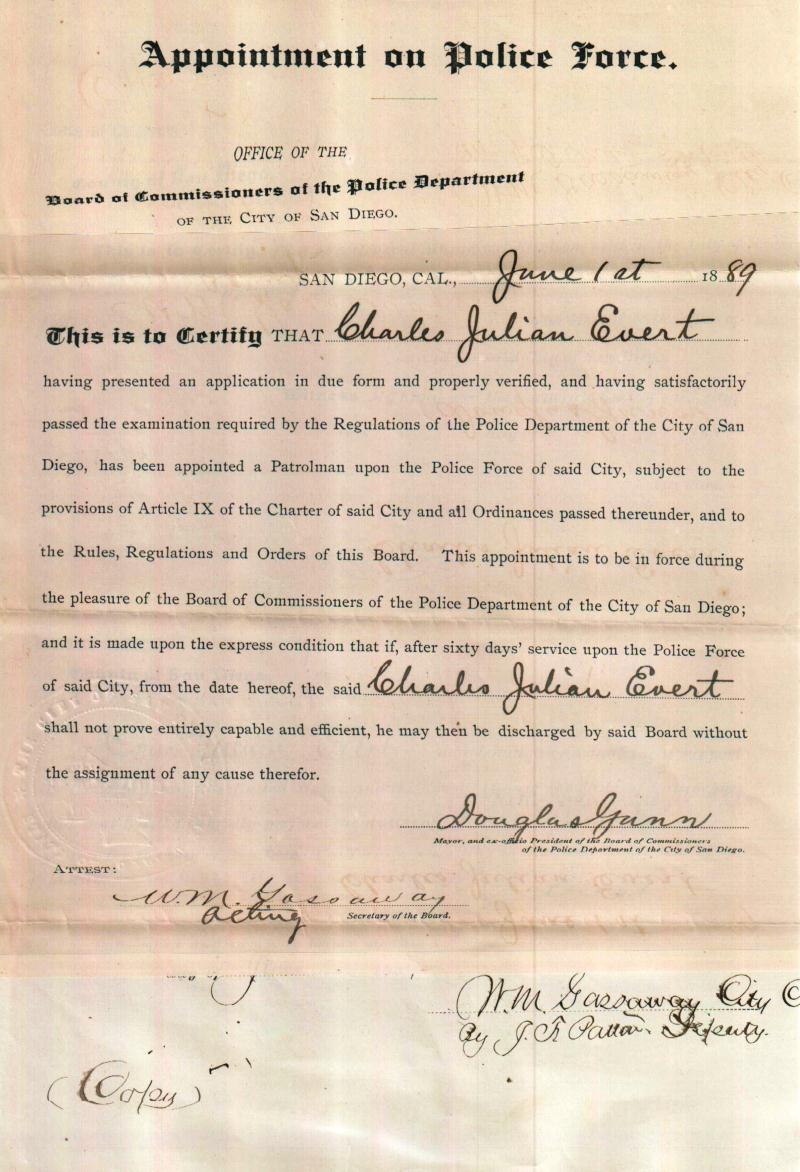 Appointment on Police Force.
OFFICE OF THE
Board of Commissioners of the Police Department
OF THE CITY OF SAN DIEGO.
SAN DIEGO, CAL., June 1st 1889
This is to Certify THAT Charles Julian Evert
having presented an application in due form and properly verified, and having satisfactorily
passed the examination required by the Regulations of the Police Department of the City of San
Diego, has been appointed a Patrolman upon the Police Force of said City, subject to the
provisions of Article IX of the Charter of said City and all Ordinances passed thereunder, and to
the Rules, Regulations and Orders of this Board. This appointment is to be in force during
the pleasure of the Board of Commissioners of the Police Department of the City of San Diego;
and it is made upon the express condition that if, after sixty days' service upon the Police Force
of said City, from the date hereof, the said Charles Julian Evert
shall not prove entirely capable and efficient, he may then be discharged by said Board without
the assignment of any cause therefor.
Douglas Gunn
Mayor, and ex-officio President of the Board of Commissioners
of the Police Department of the City of San Diego.
ATTEST:
W. M. Gassaway
Acting Secretary of the Board.
W. M. Gassaway City C
By J. F. Patton Deputy.
(Copy)